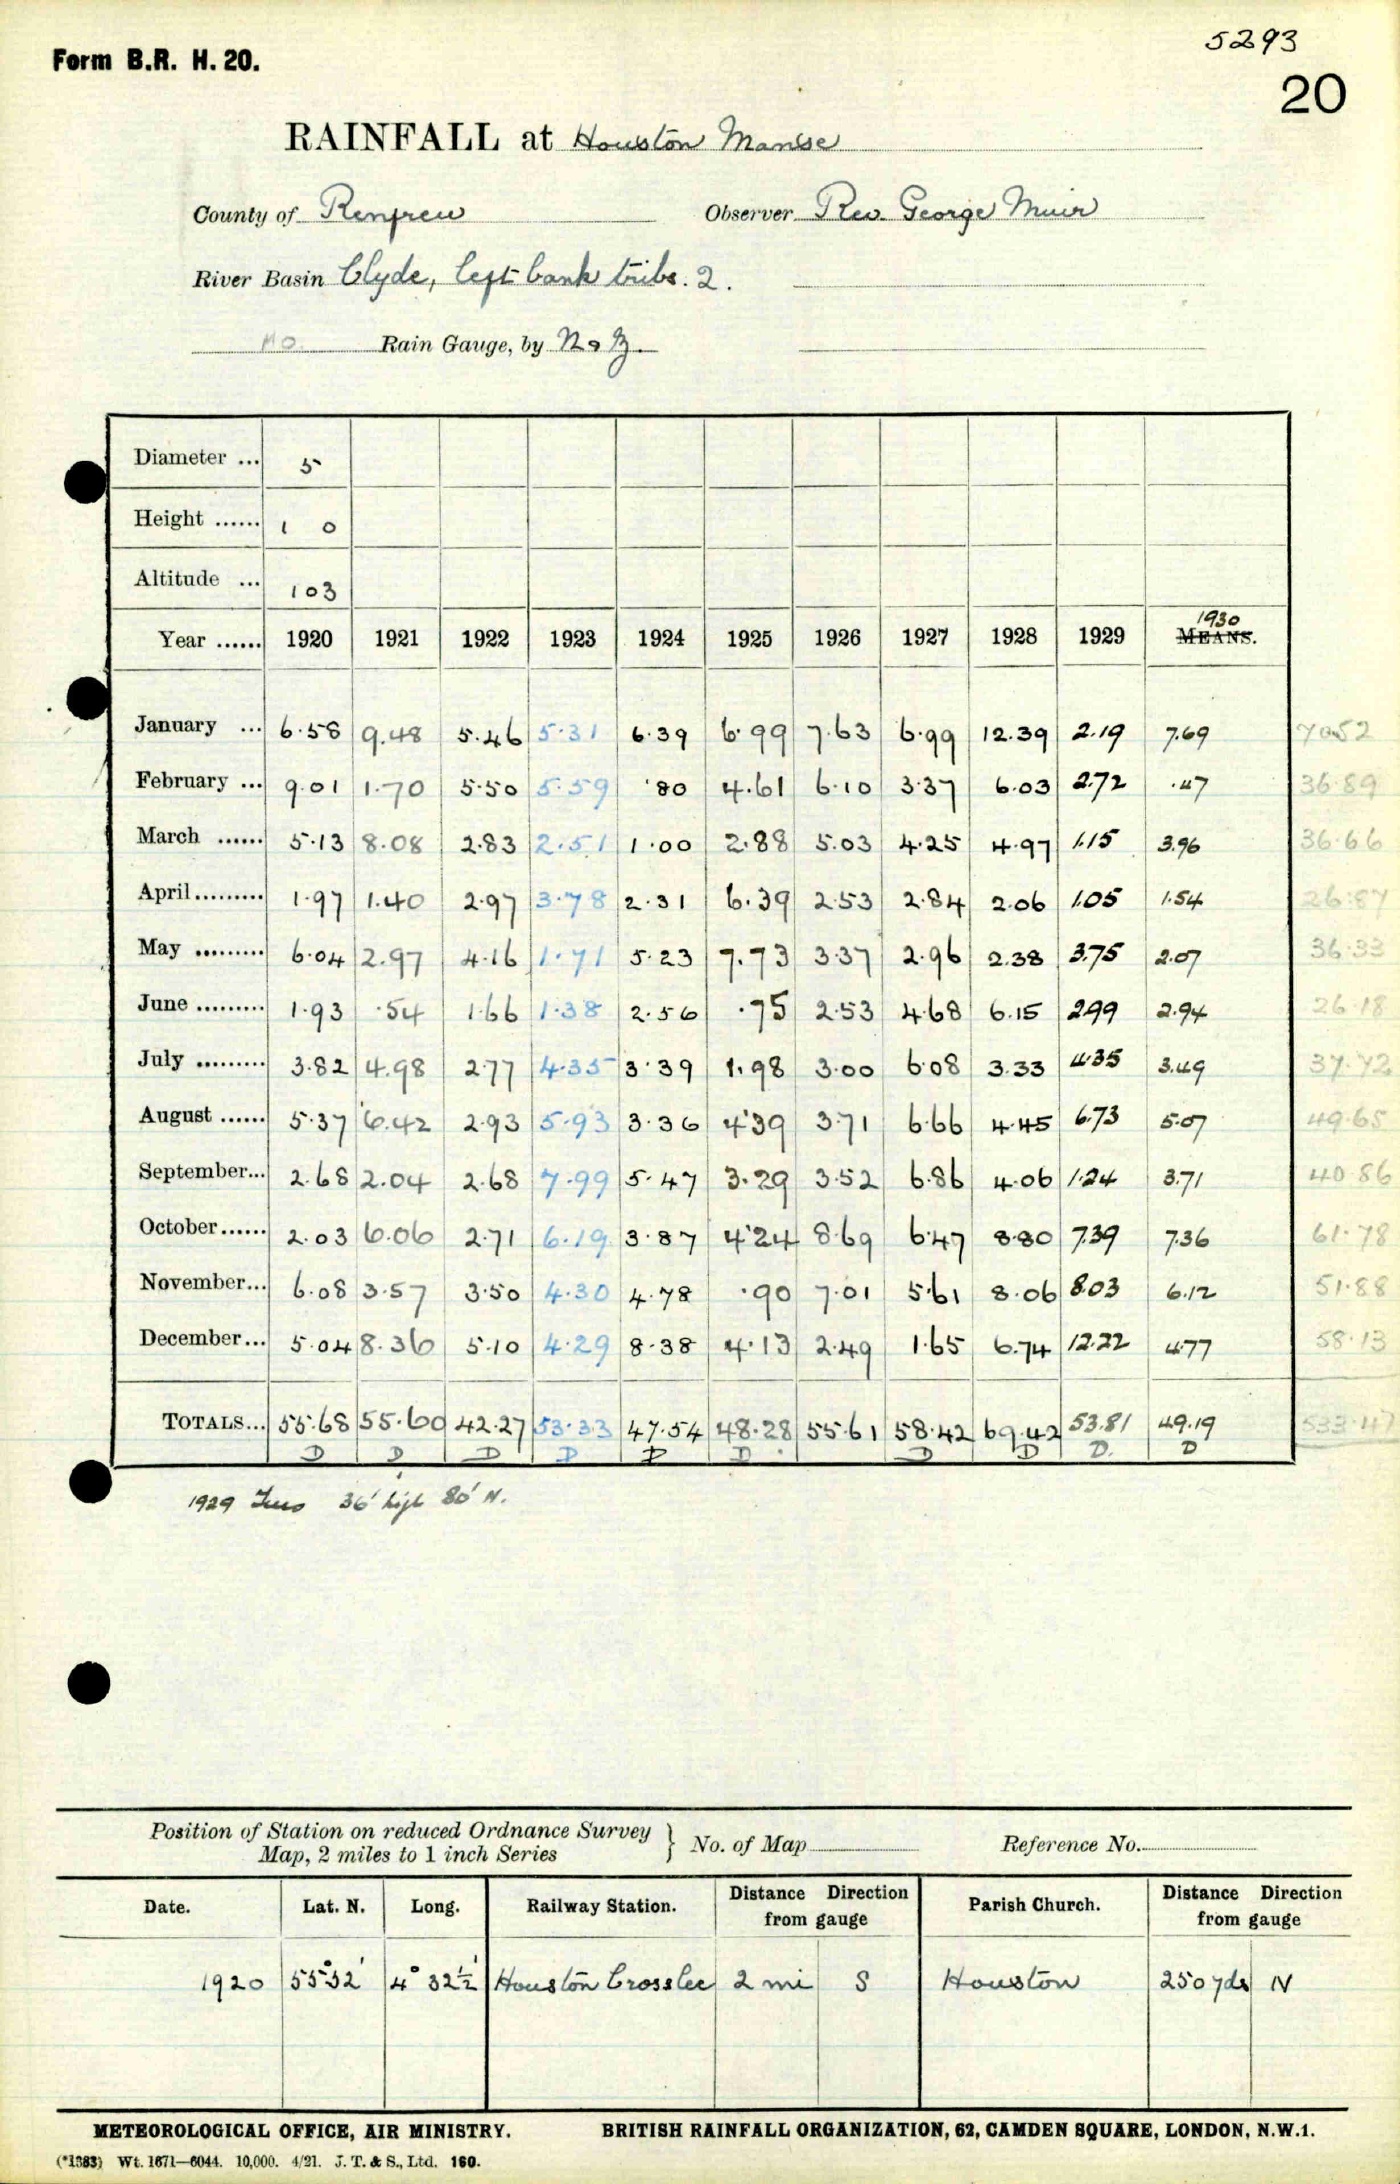 Form B.R. H. 20.
5293
20
RAINFALL at Houston Manse
County of Renfrew Observer Rev. George Muir
River Basin Clyde, left bank tribs. 2.
MO. Rain Gauge, by N & Z.
Diameter ... 5
Height ...... 1 0
Altitude ... 103
1930
Year ...... 1920 1921 1922 1923 1924 1925 1926 1927 1928 1929 MEANS.
January ... 6.58 9.48 5.46 5.31 6.39 6.99 7.63 6.99 12.39 2.19 7.69 70.52
February ... 9.01 1.70 5.50 5.59 .80 4.61 6.10 3.37 6.03 2.72 .47 36.89
March ...... 5.13 8.08 2.83 2.51 1.00 2.88 5.03 4.25 4.97 1.15 3.96 36.66
April......... 1.97 1.40 2.97 3.78 2.31 6.39 2.53 2.84 2.06 1.05 1.54 26.87
May ......... 6.04 2.97 4.16 1.71 5.23 7.73 3.37 2.96 2.38 3.75 2.07 36.33
June ......... 1.93 .54 1.66 1.38 2.56 .75 2.53 4.68 6.15 2.99 2.94 26.18
July ......... 3.82 4.98 2.77 4.35 3.39 1.98 3.00 6.08 3.33 4.35 3.49 37.72
August ...... 5.37 6.42 2.93 5.93 3.36 4.39 3.71 6.66 4.45 6.73 5.07 49.65
September... 2.68 2.04 2.68 7.99 5.47 3.29 3.52 6.86 4.06 1.24 3.71 40.86
October...... 2.03 6.06 2.71 6.19 3.87 4.24 8.69 6.47 8.80 7.39 7.36 61.78
November... 6.08 3.57 3.50 4.30 4.78 .90 7.01 5.61 8.06 8.03 6.12 51.88
December... 5.04 8.36 5.10 4.29 8.38 4.13 2.49 1.65 6.74 12.22 4.77 58.13
TOTALS... 55.68 55.60 42.27 53.33 47.54 48.28 55.61 58.42 69.42 53.81 49.19 533.47
D D D D D D D D D. D
1929 36' high 80' N.
Position of Station on reduced Ordnance Survey
Map, 2 miles to 1 inch Series } No. of Map Reference No.
Date. Lat. N. Long. Railway Station. Distance Direction from gauge Parish Church. Distance Direction from gauge
1920 55°52' 4° 32½' Houston Crosslee 2 mi S Houston 250 yds N
METEOROLOGICAL OFFICE, AIR MINISTRY. BRITISH RAINFALL ORGANIZATION, 62, CAMDEN SQUARE, LONDON, N.W.1.
(*1383) Wt. 1671—6044. 10,000. 4/21. J. T. & S., Ltd. 160.